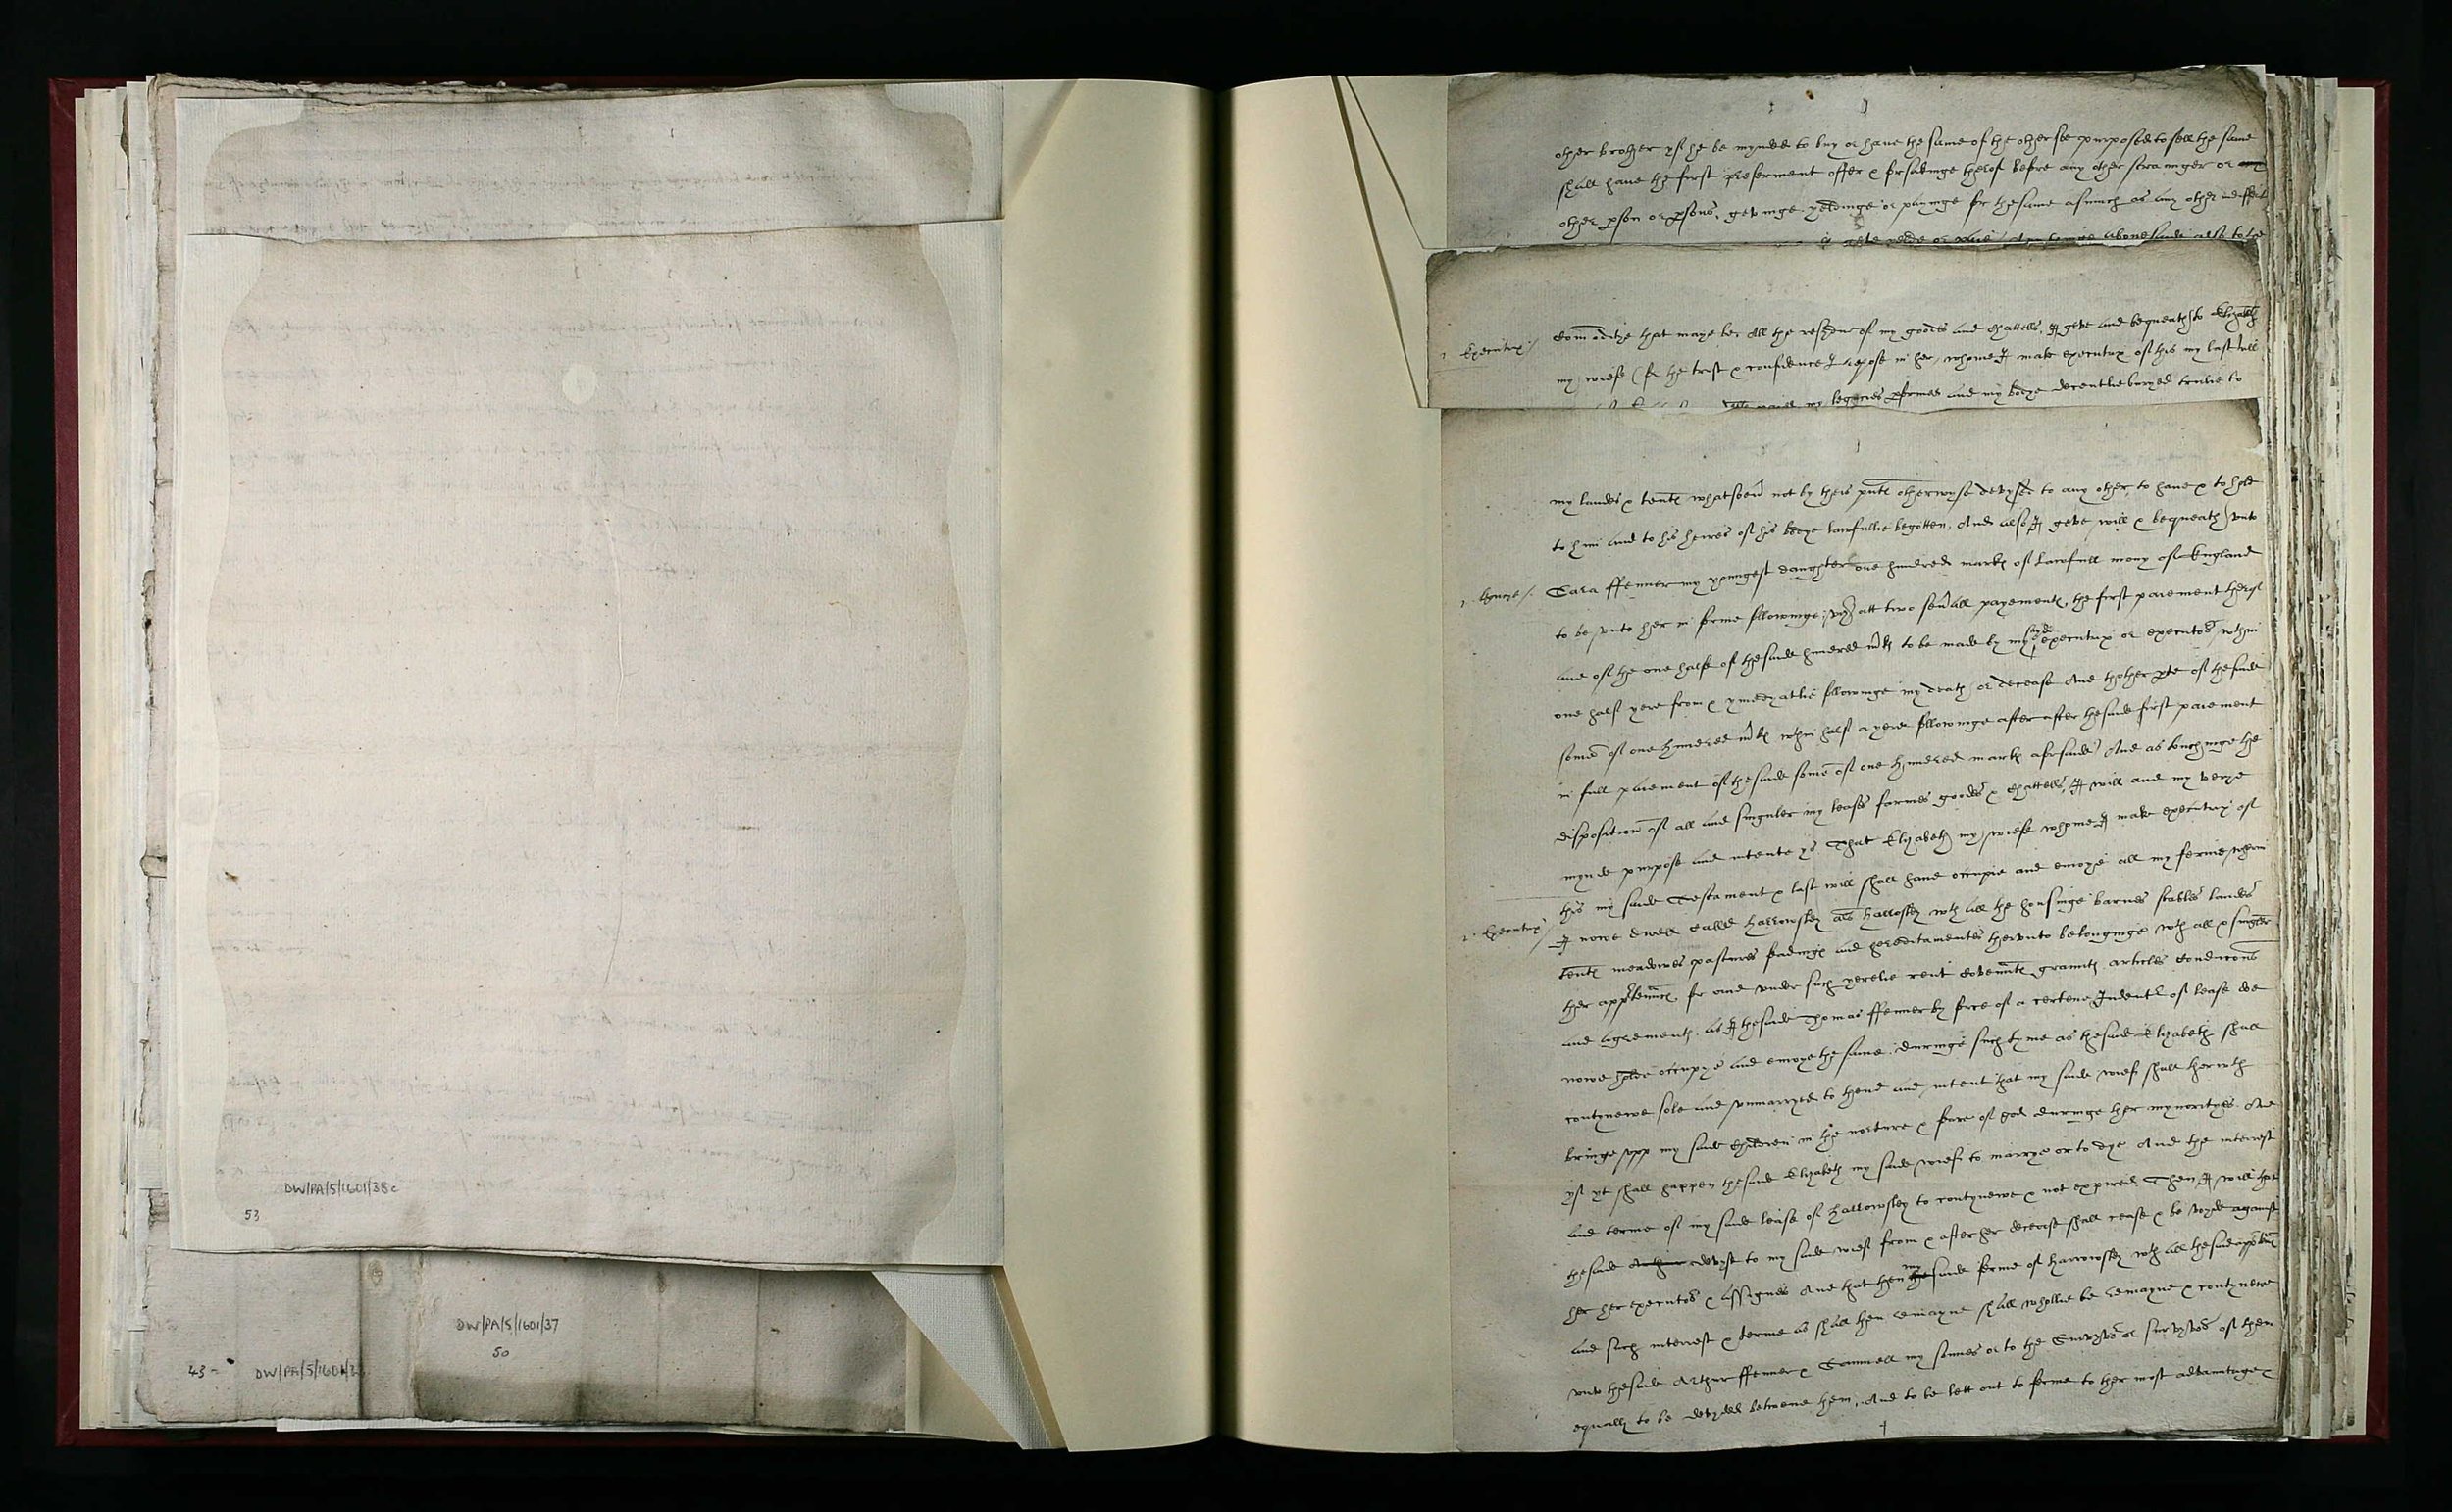 DW/PA/5/1601/38c
53
DW/PA/5/1601/37
50
43 -
DW/PA/5/1601/3
other brother yf he be mynded to buy or have the same of the other so purposed to sell the same
shall have the first preferment offer & forsakinge therof before any other strainger or
other pson or psons, gevinge yeldinge or payinge for the same asmuch as any other
Executrix
Comoditye that maye be. All the resydue of my goodes and chattells, I geve and bequeath to Elizabeth
my wiefe (for the trust & confidence I repose in her, whome I make executrix of this my last will
paied my legacies pformed and my bodye decentlie buryed trulie to
my landes & tentes whatsoever not by theis pntes otherwyse devysed to any other, to have & to hold
to him and to his heires of his bodye lawfullie begotten, And also I geve will & bequeath unto
Sara ffenner my youngest daughter one hundred markes of lawfull mony of England
to be unto her in forme followinge, viz att two sevrall payementes, the first paiement therof
and of the one halfe of the saide hundred mkes to be made by my saide executrix or executors within
one half yere from & ymedyatlie followinge my death or decease And thother pte of the saide
some of one hundred mkes wthin half a yere followinge after after the saide first paiement
in full paiement of the saide some of one hundred markes aforsaide And as touchinge the
disposition of all and singuler my leases farmes goodes & chattells, I will and my verye
mynde purpose and intente ys That Elizabeth my wiefe whome I make executrix of
this my saide Testament & last will shall have occupie and enioye all my ferme wherin
Executrix
I nowe dwell called Harrowsley als Hallosley wth all the housinge barnes stables landes
tentes meadowes pastures feadinges and hereditamentes therunto belonginge wth all & singler
ther apptennces, for and under such yerelie rent covenntes grauntes articles Condicons
and agrementes, as I the saide Thomas ffenner by force of a certene Indenture of lease doe
nowe holde occupye and enioye the same, duringe such tyme as the saide Elizabeth shall
contynewe sole and unmarryed to thend and intent that my saide wief shall therwth
bringe upp my saide Children in the norture & feare of god duringe ther mynorityes And
yf yt shall happen the saide Elizabeth my saide wief to marrye or to dye And the interest
and terme of my saide lease of Hallowsley to contynewe & not expired. Then I will that
the saide devyse to my saide wief from & after her decease shall cease & be voyde against
her her executors & assignes And that then my saide ferme of Harrowsley wth all the saide appten
and such interest & terme as shall then remayne shall whollie be remayne & contynewe
unto the saide Arthur ffenner & Samuell my sonnes or to the Survyvor or survyvors of them
equally to be devyded betwene them, And to be lett out to ferme to ther most advauntage &